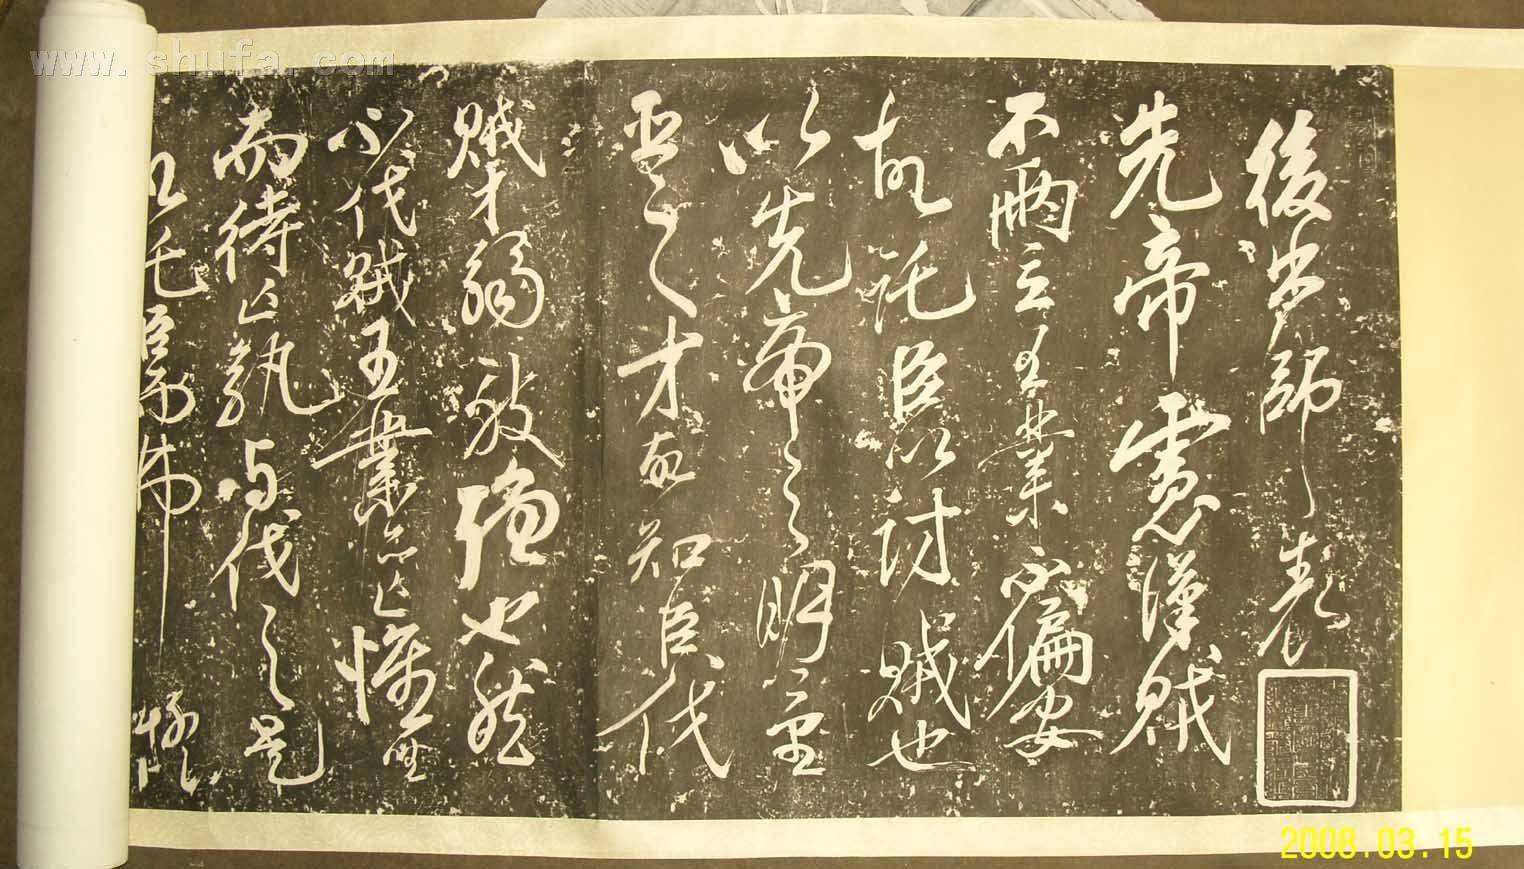 後出師表
先帝慮漢賊
不兩立王業不偏安
故託臣以討賊也
以先帝之明量
臣之才故知臣伐
賊才弱敵強也然
不伐賊王業亦亡惟坐
而待亡孰與伐之是
以託臣而弗疑
www.shufa.com
2008.03.15